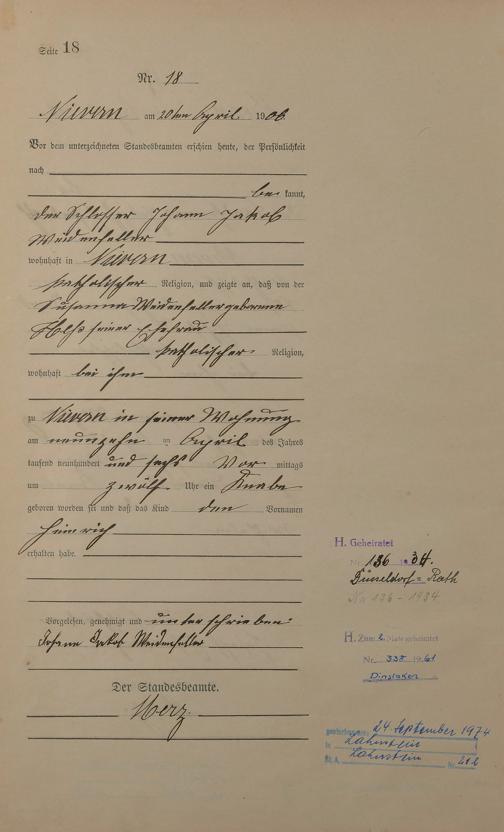 Seite 18
Nr. 18
Nievern am 20ten April 1906.
Vor dem unterzeichneten Standesbeamten erschien heute, der Persönlichkeit
nach
be kannt,
der Schlosser Johann Jakob
Weidenfeller
wohnhaft in Nievern
katholischer Religion, und zeigte an, daß von der
Susanna Weidenfeller geborene
seiner Ehefrau
katholischer Religion,
wohnhaft bei ihm
zu Nievern in seiner Wohnung
am neunzehn ten April des Jahres
tausend neunhundert und sechs Vor mittags
um zwölf Uhr ein Knabe
geboren worden sei und daß das Kind den Vornamen
Heinrich
erhalten habe.
Vorgelesen, genehmigt und unterschrieben:
Johann Jakob Weidenfeller
Der Standesbeamte.
Merz
H. Geheiratet
Nr. 136 1934.
Düsseldorf-Rath
No 136-1934
H. Zum 2. Male geheiratet
Nr. 338 1961
Dinslaken
gestorben am: 24. September 1974
in Lahnstein
St. A. Lahnstein Nr. 212